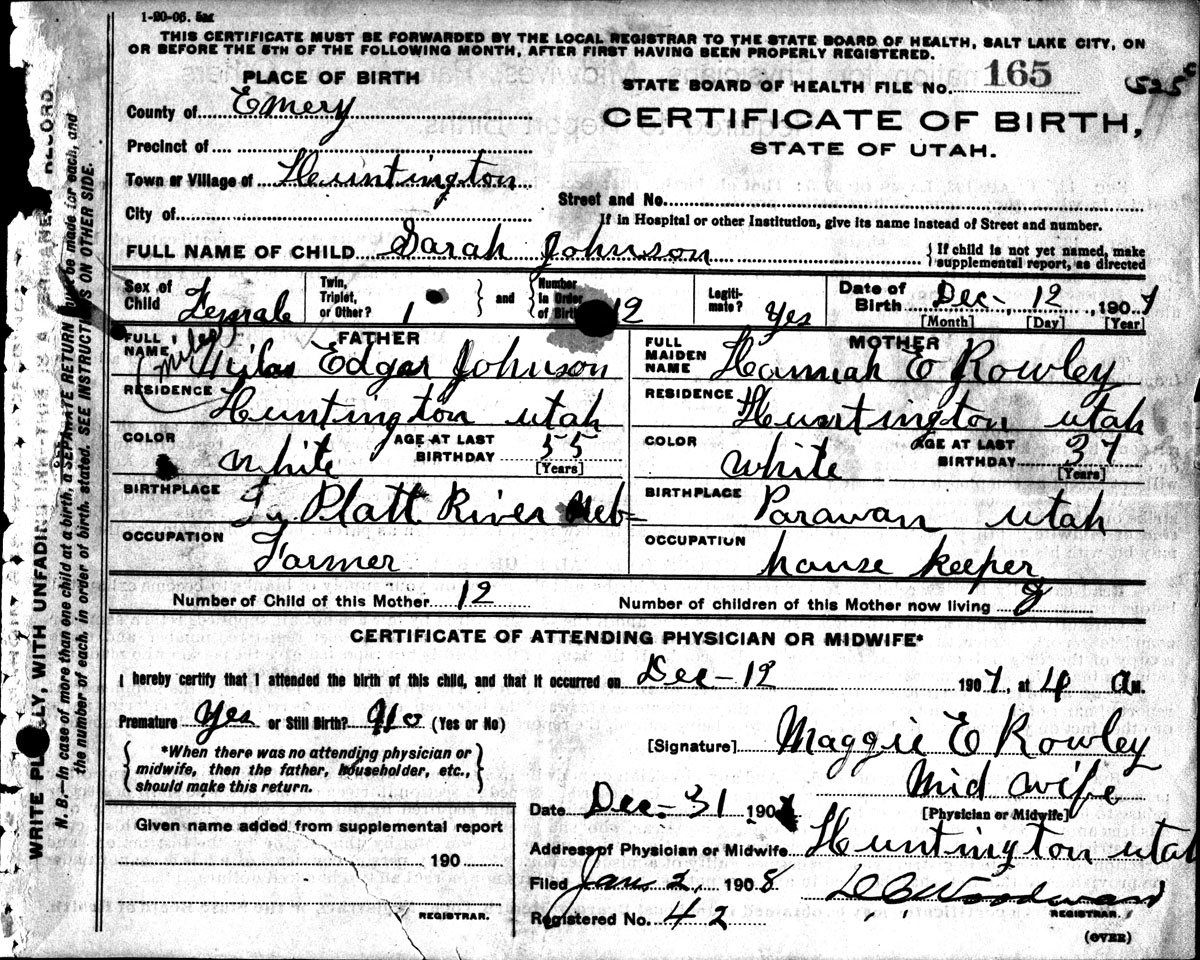 1-20-06. 5M
THIS CERTIFICATE MUST BE FORWARDED BY THE LOCAL REGISTRAR TO THE STATE BOARD OF HEALTH, SALT LAKE CITY, ON
OR BEFORE THE 5TH OF THE FOLLOWING MONTH, AFTER FIRST HAVING BEEN PROPERLY REGISTERED.
PLACE OF BIRTH
STATE BOARD OF HEALTH FILE NO. 165
County of Emery
CERTIFICATE OF BIRTH,
STATE OF UTAH.
Precinct of
Town or Village of Huntington
City of
Street and No.
If in Hospital or other Institution, give its name instead of Street and number.
FULL NAME OF CHILD Sarah Johnson
{If child is not yet named, make
supplemental report, as directed
Sex of Child Female
Twin, Triplet, or Other? 1
and Number in Order of Birth 12
Legitimate? Yes
Date of Birth Dec- 12, 1907
[Month] [Day] [Year]
FATHER
FULL NAME Edgar Johnson
RESIDENCE Huntington utah
COLOR white
AGE AT LAST BIRTHDAY 55
[Years]
BIRTHPLACE Platt River Neb-
OCCUPATION Farmer
MOTHER
FULL MAIDEN NAME Hannah E Rowley
RESIDENCE Huntington utah
COLOR white
AGE AT LAST BIRTHDAY 37
[Years]
BIRTHPLACE Parawan utah
OCCUPATION house keeper
Number of Child of this Mother 12
Number of children of this Mother now living
CERTIFICATE OF ATTENDING PHYSICIAN OR MIDWIFE*
I hereby certify that I attended the birth of this child, and that it occurred on Dec-12 1907, at 4 a M.
Premature Yes or Still Birth? No (Yes or No)
{*When there was no attending physician or
midwife, then the father, householder, etc.,
should make this return.}
[Signature] Maggie E Rowley
Mid wife
[Physician or Midwife]
Date Dec-31 190
Address of Physician or Midwife Huntington utah
Filed Jan 2, 1908
Woodward
REGISTRAR.
Registered No. 42
(OVER)
Given name added from supplemental report
190
REGISTRAR.
WRITE PLAINLY, WITH UNFADING RECORD.
N. B.—In case of more than one child at a birth, a SEPARATE RETURN must be made for each, and
the number of each, in order of birth, stated. SEE INSTRUCTIONS ON OTHER SIDE.